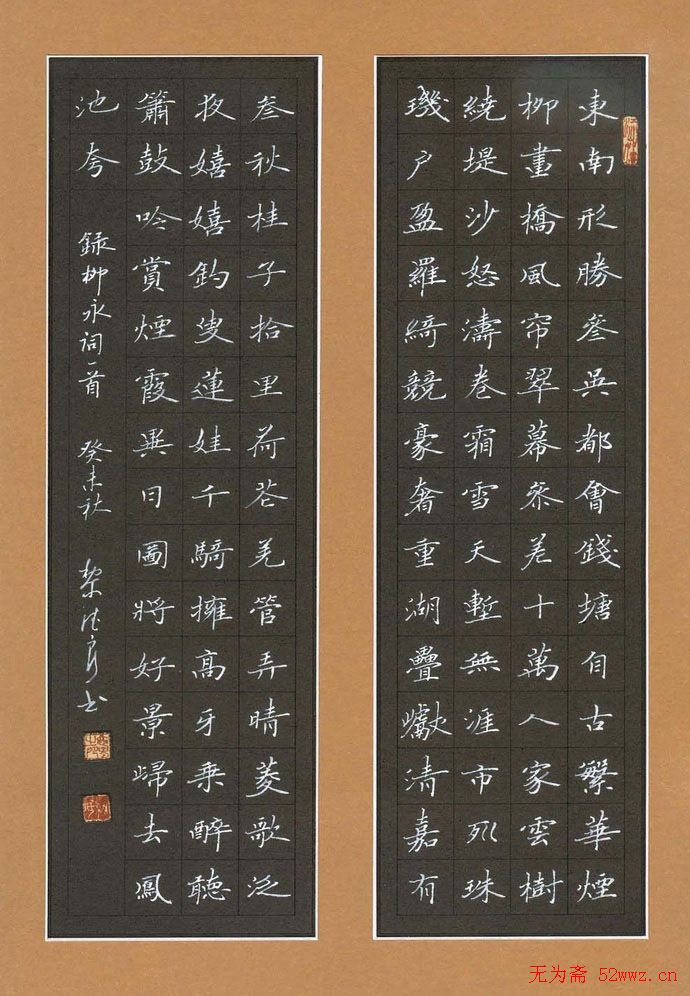 東南形勝叄吳都會錢塘自古繁華煙
柳畫橋風帘翠幕叅差十萬人家雲樹
繞堤沙怒濤卷霜雪天塹無涯市列珠
璣户盈羅綺競豪奢重湖疊巘清嘉有
叄秋桂子拾里荷花羌管弄晴菱歌泛
夜嬉嬉釣叟蓮娃千騎擁高牙乘醉聽
簫鼓吟賞煙霞異日圖將好景歸去鳳
池夸 録柳永詞一首 癸未秋 书
无为斋 52wwz.cn